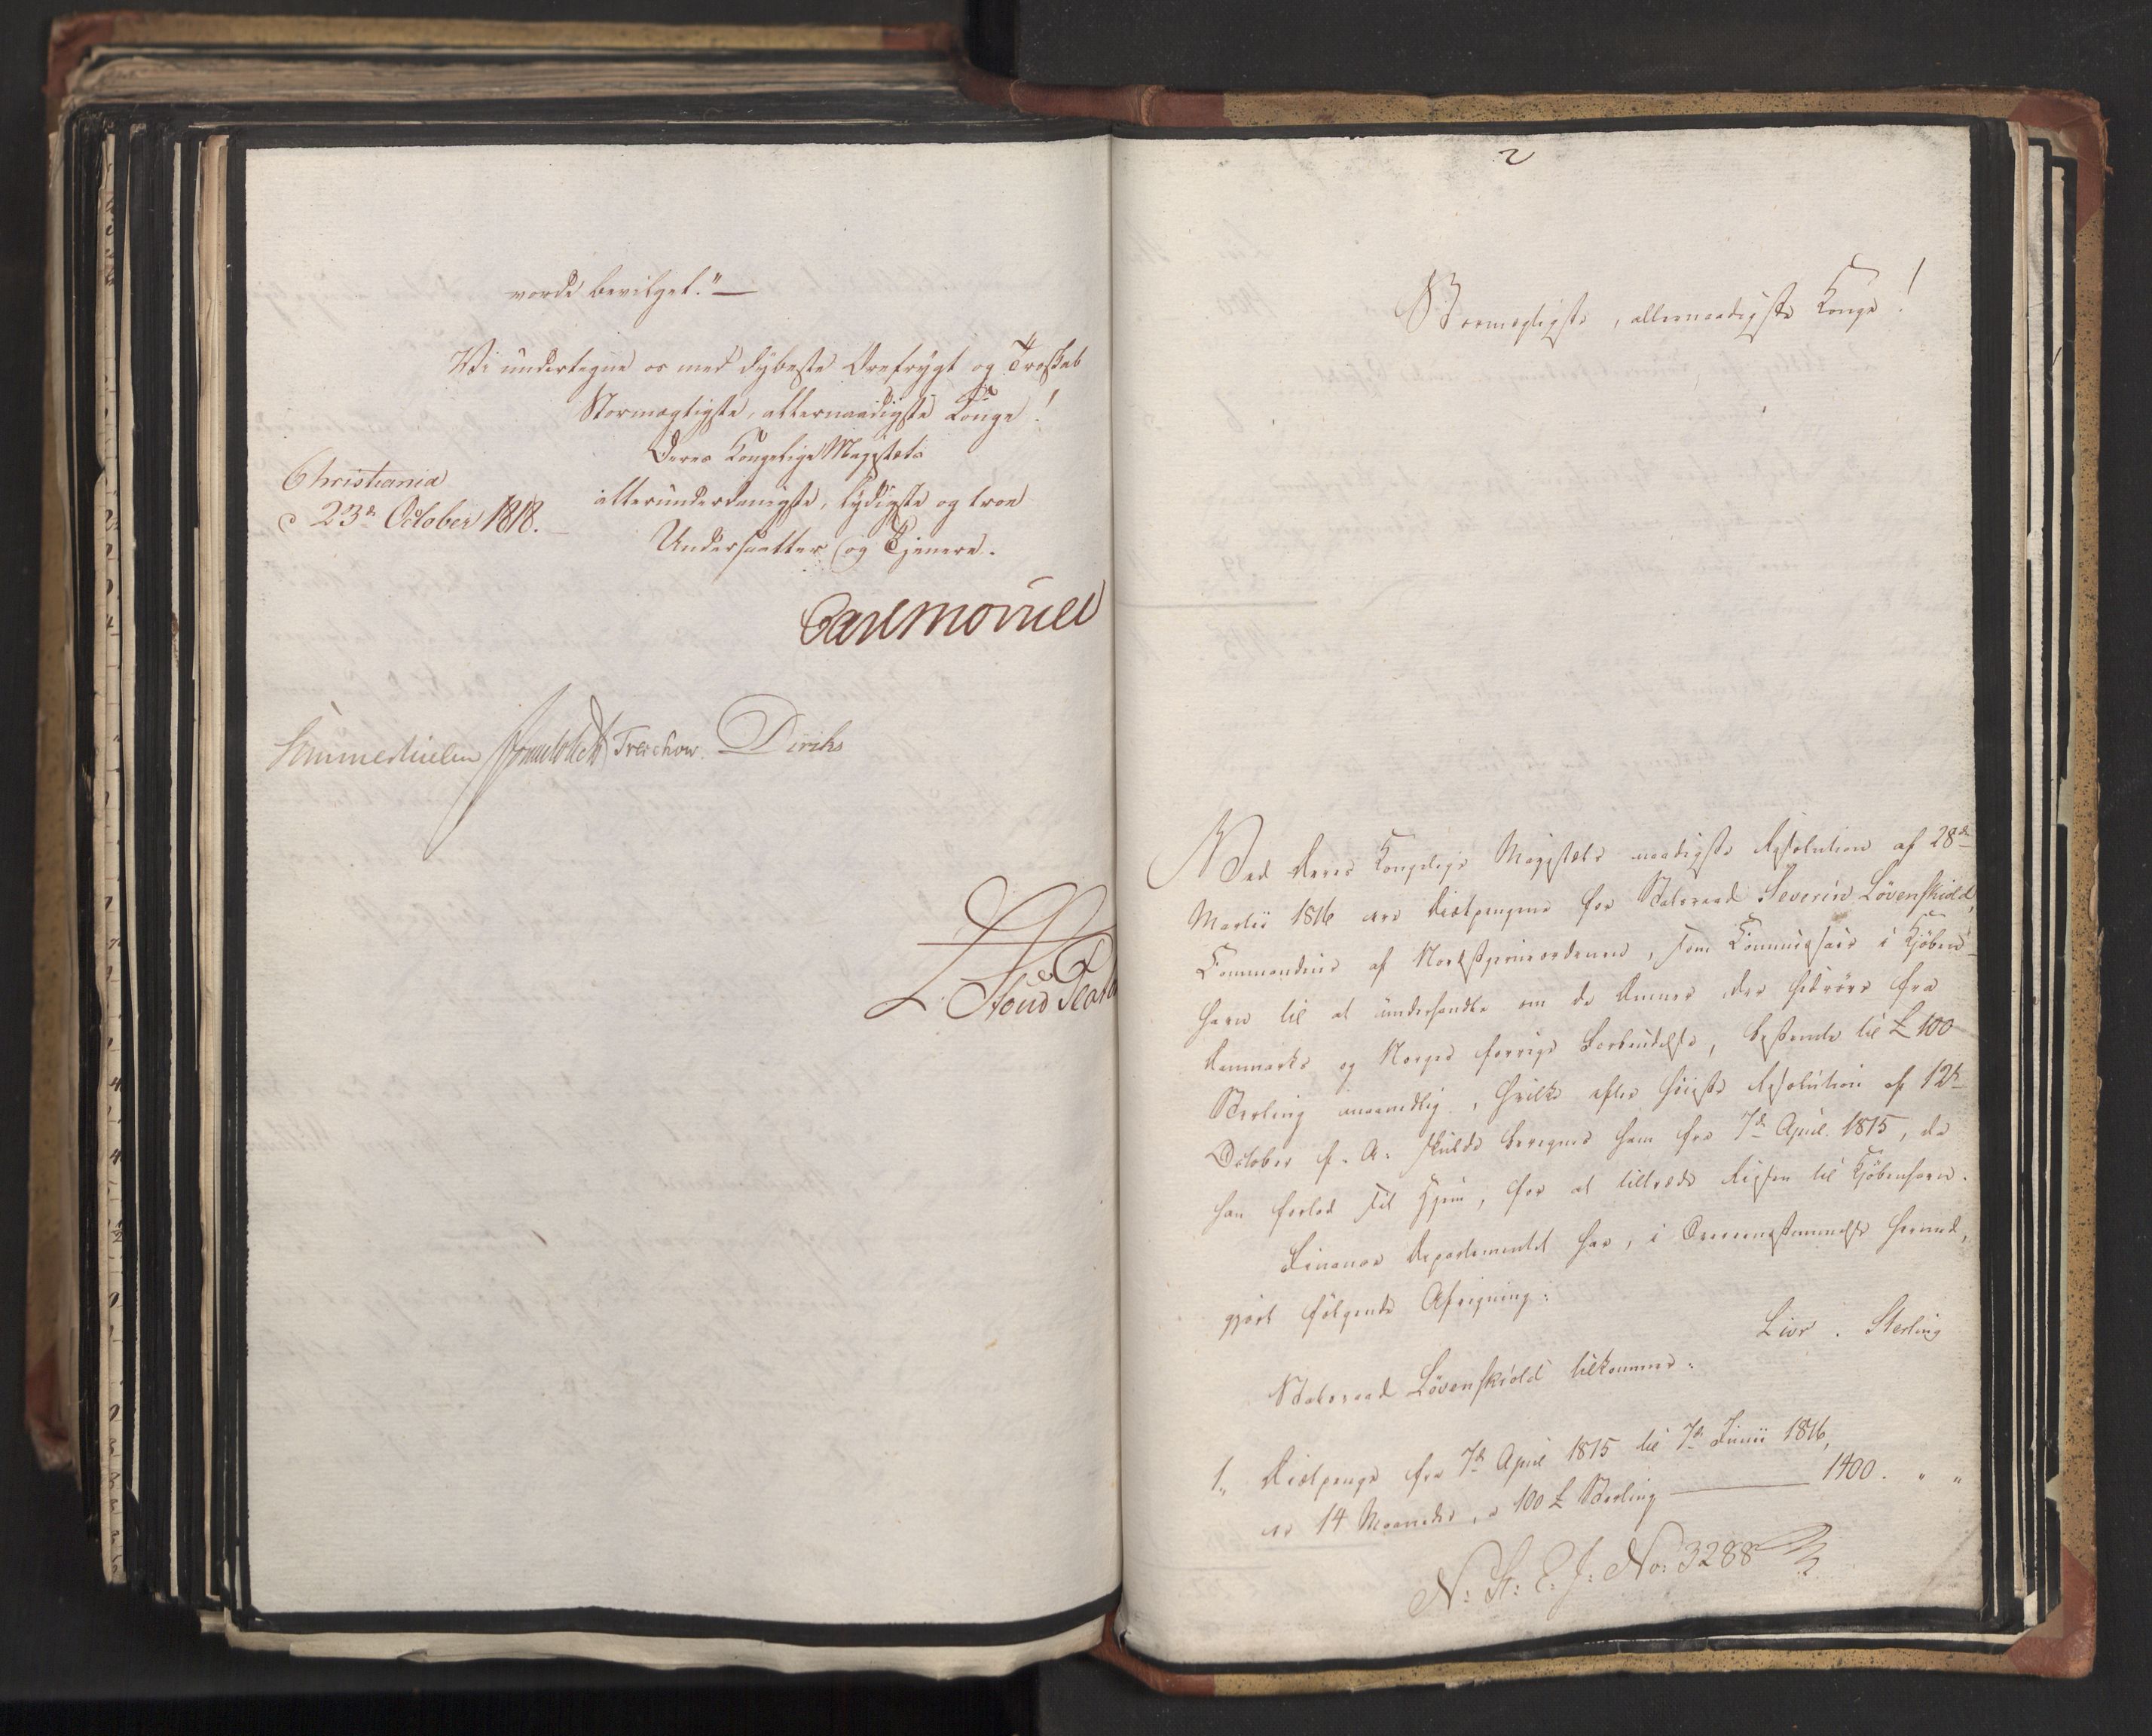 vorde bevilget."—
Vi undertegne os med dybeste Ærefrygt og Troskab
Stormægtigste, allernaadigste Konge!
Deres Kongelige Majestæts
Christiania
d 23de October 1818.
allerunderdanigste, lydigste og troe
Undersaatter og Tjenere.
Carl Mörner
Sommerhielm Treschow Diriks
L. Stoud Plat
2
Stormægtigste, allernaadigste Konge!
Ved Deres Kongelige Majestæts naadigste Resolution af 28de
Martii 1816 ere Diætpengene for Statsraad Severin Lövenskiold,
Commandeur af Nordstjerneordenen, som Commissair i Kjöben-
havn til at underhandle om de Emner, der hidröre fra
Danmarks og Norges forrige Forbindelse, bestemte til £ 100
Sterling maanedlig, hvilke efter höieste Resolution af 12te
October f. A. skulde beregnes ham fra 7de April 1815, da
han forlod sit Hjem, for at tiltræde Reisen til Kjöbenhavn.
Finance Departementet har, i Overeensstemmelse hermed,
gjort fölgende Afregning:
Livr. Sterling
Statsraad Lövenskiold tilkommer:
1, Diætpenge fra 7de April 1815 til 7de Junii 1816,
er 14 Maaneder, a 100 £ Sterling — 1400. " "
N: St: E: J: No: 3288